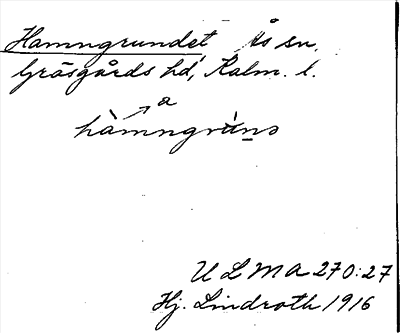 Hamngrundet Ås sn.
Gräsgårds hd, Kalm. l.
a
hàmngrùns
ULMA 270:27
Hj. Lindroth 1916